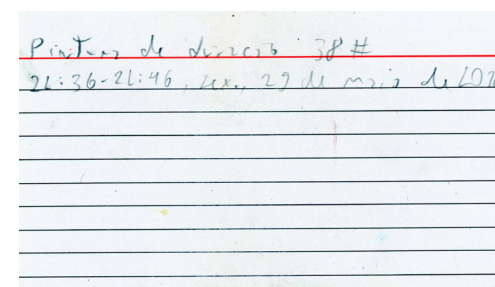 Pintura de duração 38#
21:36-21:46, sex., 29 de maio de